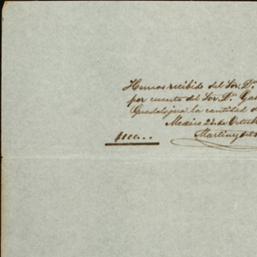 Hemos recibido del Sor. Dn.
por cuenta del Sor. Dn.
Guadalajara la cantidad
Mexico 22 de Octub
Martinez